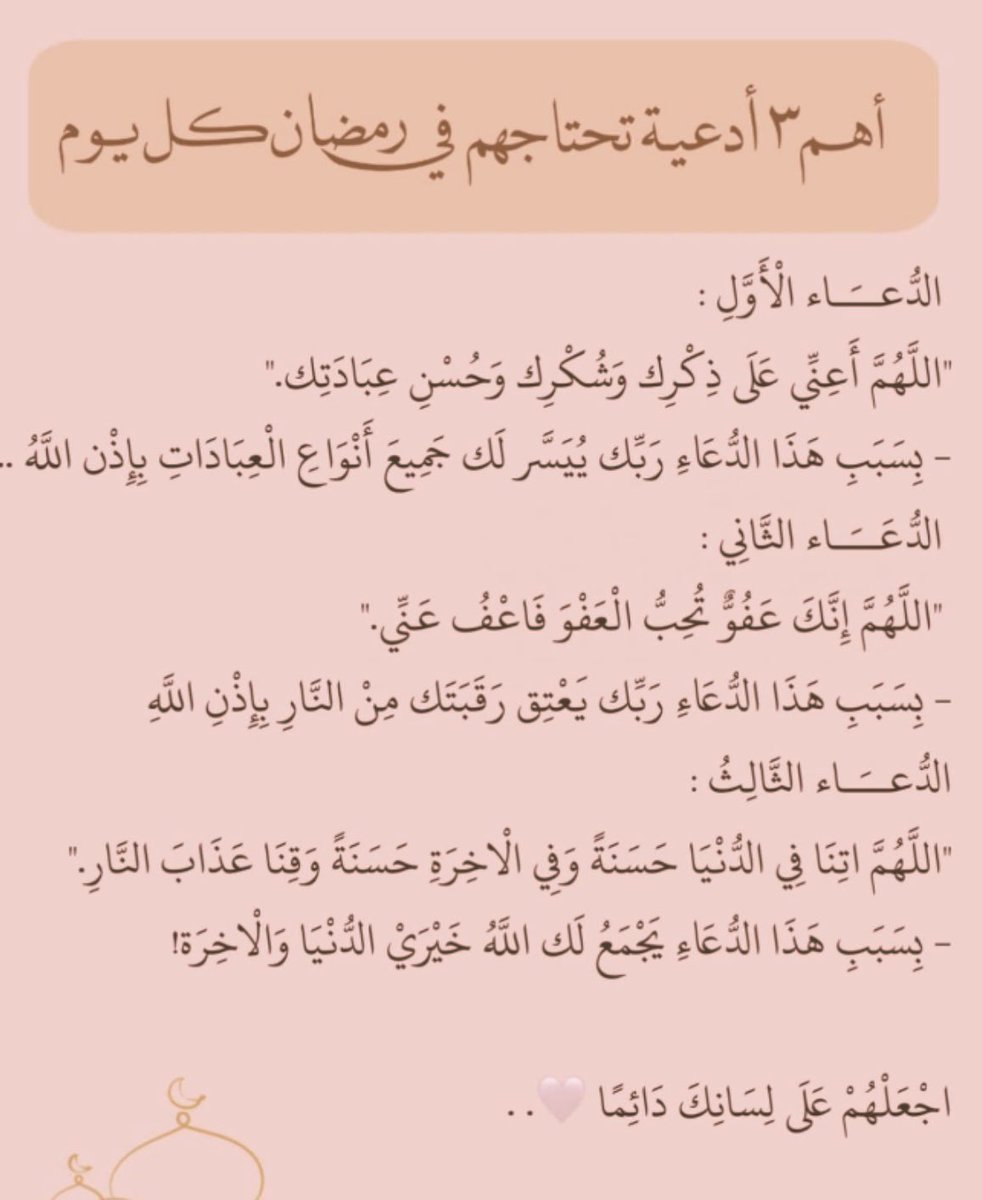 أهم ٣ أدعية تحتاجهم في رمضان كل يوم
الدُّعـــَـاء الْأَوَّلِ :
"اللَّهُمَّ أَعِنِّي عَلَى ذِكْرِك وَشُكْرِك وَحُسْنِ عِبَادَتِك."
- بِسَبَبِ هَذَا الدُّعَاءِ رَبِّك يُيَسَّر لَك جَمِيعَ أَنْوَاعِ الْعِبَادَاتِ بِإِذْن اللَّهُ ..
الدُّعَـــَـاء الثَّانِي :
"اللَّهُمَّ إِنَّكَ عَفُوٌّ تُحِبُّ الْعَفْوَ فَاعْفُ عَنِّي."
- بِسَبَبِ هَذَا الدُّعَاءِ رَبِّك يَعْتِق رَقَبَتَك مِنْ النَّارِ بِإِذْنِ اللَّهِ
الدُّعـــَـاء الثَّالِثُ :
"اللَّهُمَّ اتِنَا فِي الدُّنْيَا حَسَنَةً وَفِي الْاخِرَةِ حَسَنَةً وَقِنَا عَذَابَ النَّارِ."
- بِسَبَبِ هَذَا الدُّعَاءِ يَجْمَعُ لَك اللَّهُ خَيْرَيْ الدُّنْيَا وَالْاخِرَة!
اجْعَلْهُمْ عَلَى لِسَانِكَ دَائِمًا 🤍. .